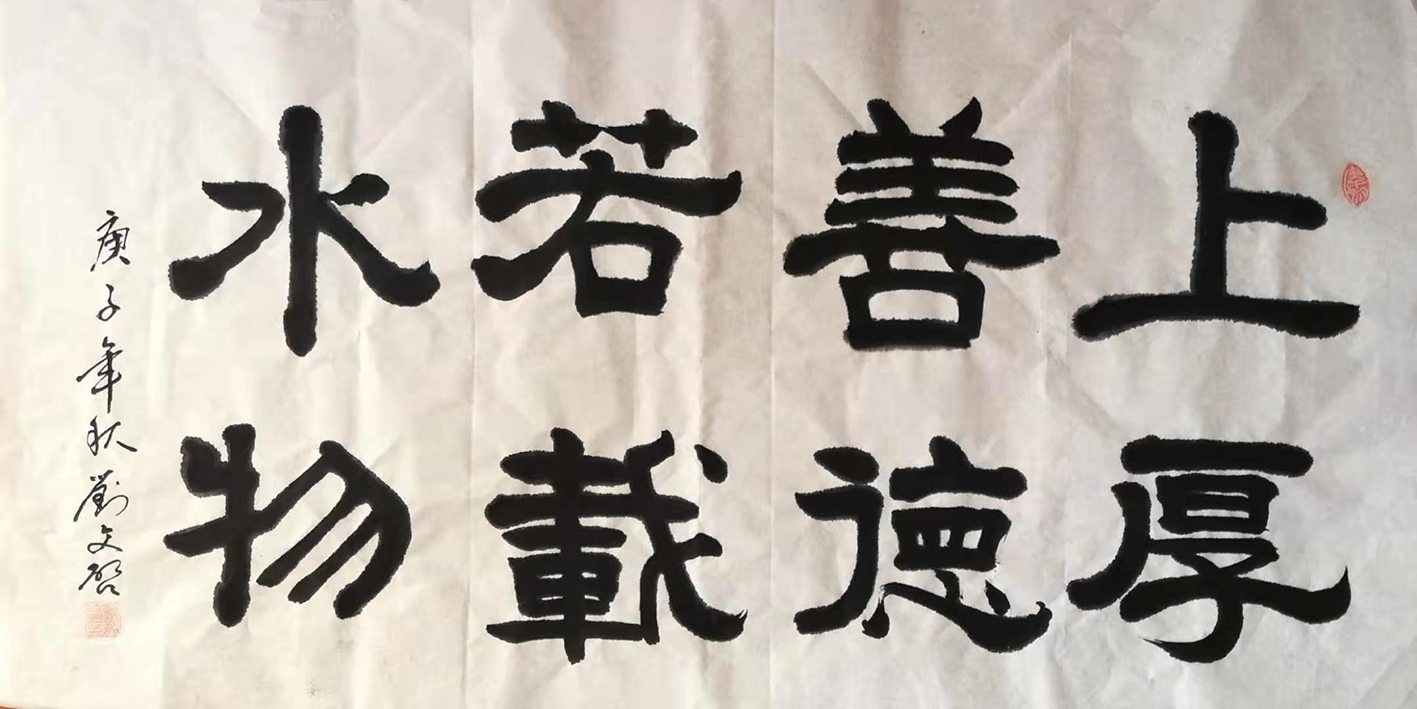 上善若水
厚德載物
庚子年秋劉文啓